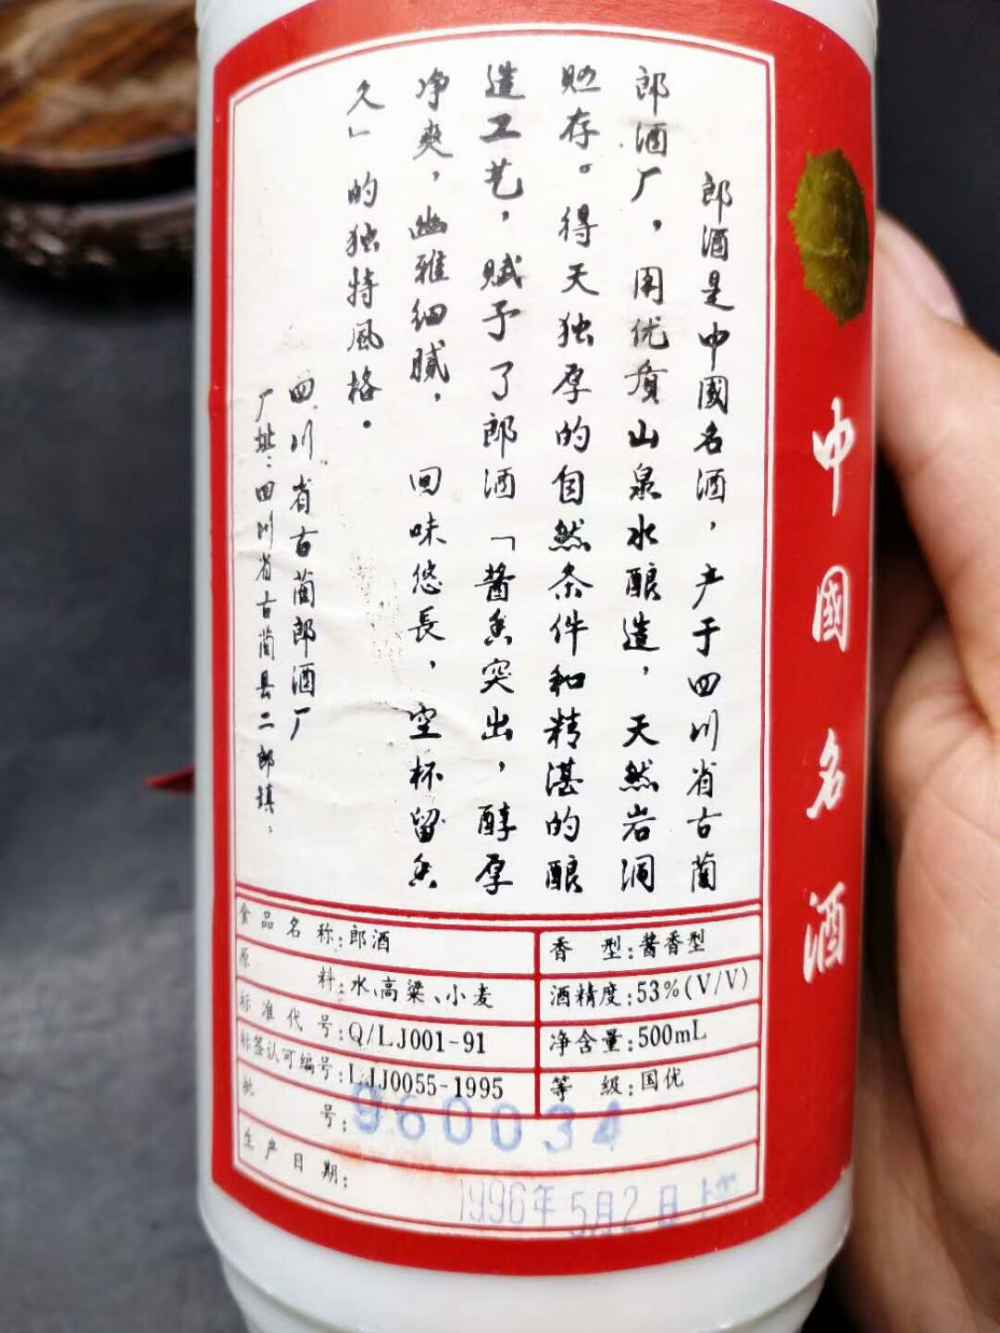 郎酒是中國名酒，产于四川省古蔺
郎酒厂，用优质山泉水酿造，天然岩洞
贮存。得天独厚的自然条件和精湛的酿
造工艺，赋予了郎酒「酱香突出，醇厚
净爽，幽雅细腻，回味悠長，空杯留香
久」的独特風格。
四川省古蔺郎酒厂
厂址：四川省古蔺县二郎镇。
食品名称：郎酒
香型：酱香型
原料：水、高粱、小麦
酒精度：53%(V/V)
标准代号：Q/LJ001-91
净含量：500mL
标签认可编号：LJJ0055-1995
等级：国优
批号：960034
生产日期：1996年5月2日
中國名酒